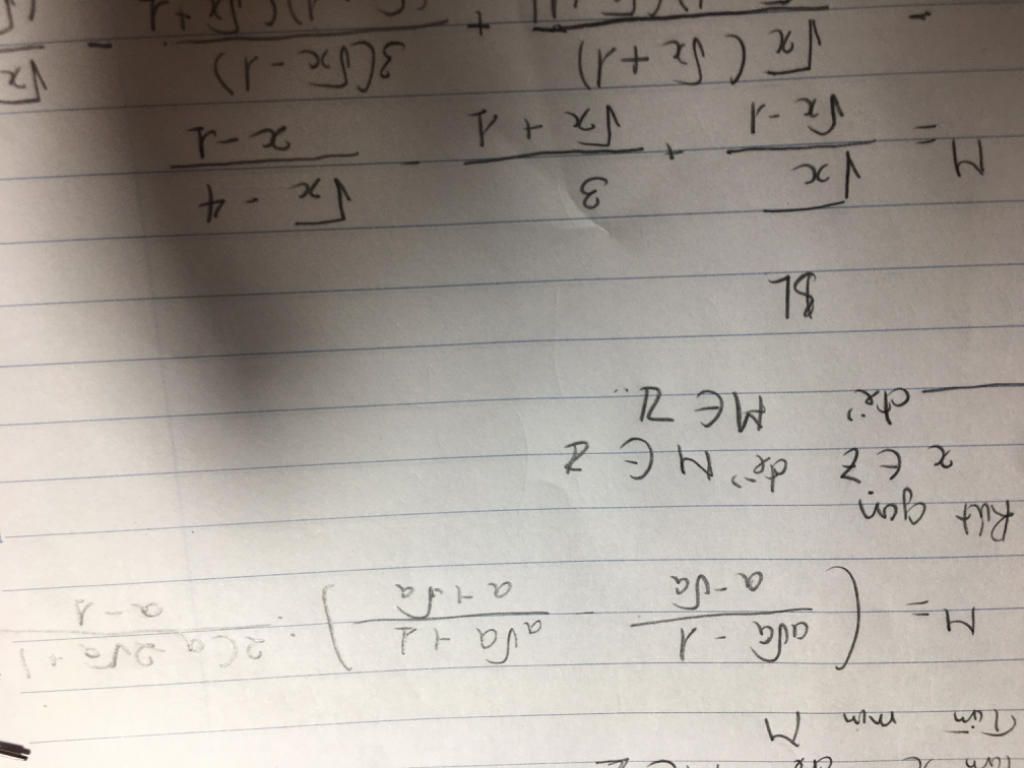 Tìm min M
M = ( (a√a - 1)/(a - √a) - (a√a + 1)/(a + √a) ) : 2(a - 2√a + 1)/(a - 1)
Rút gọn
x ∈ Z để M ∈ Z
để M ∈ Z
BL
M = √x/(√x - 1) + 3/(√x + 1) - (√x - 4)/(x - 1)
= √x(√x + 1) + 3(√x - 1) - √x